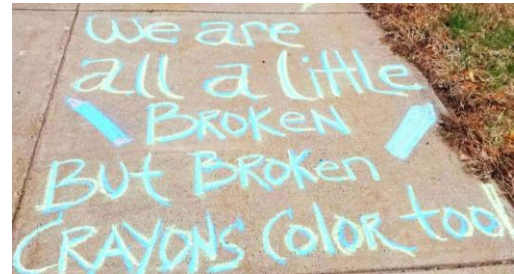 We are
all a little
BROKen
But BROKen
CRAYONS COLOR too!